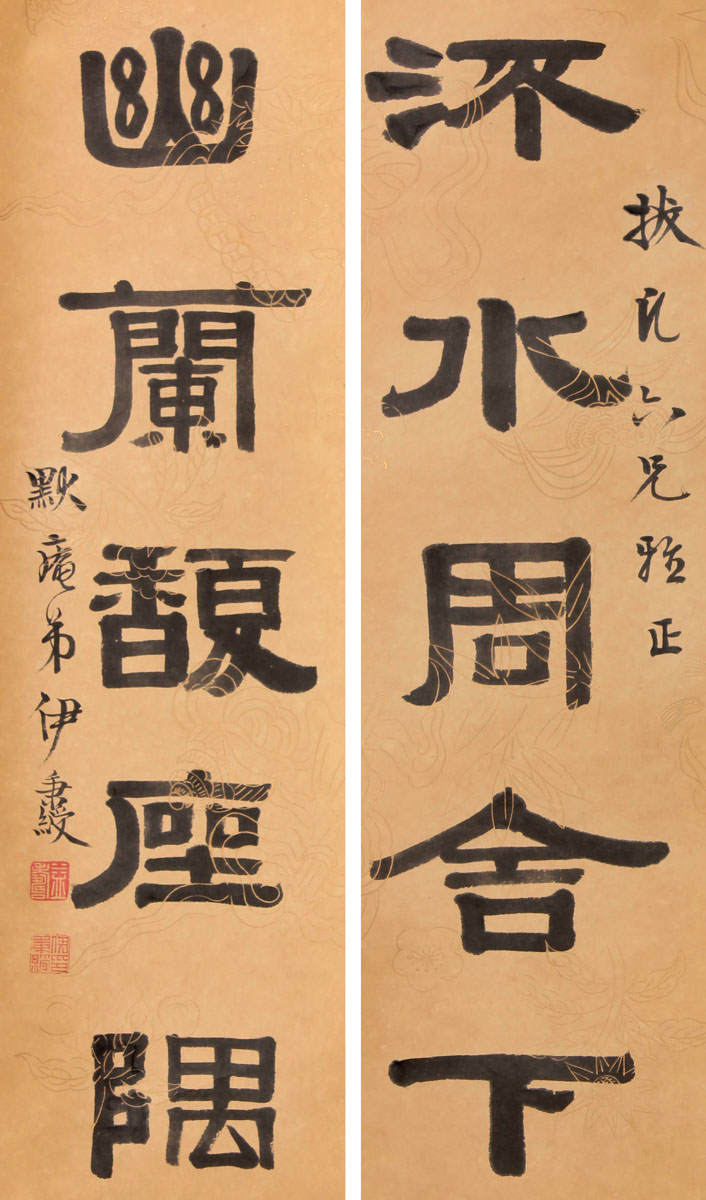 㳅水周舍下
拔六兄雅正
幽蘭馥座隅
默庵弟伊秉綬
伊印秉綬